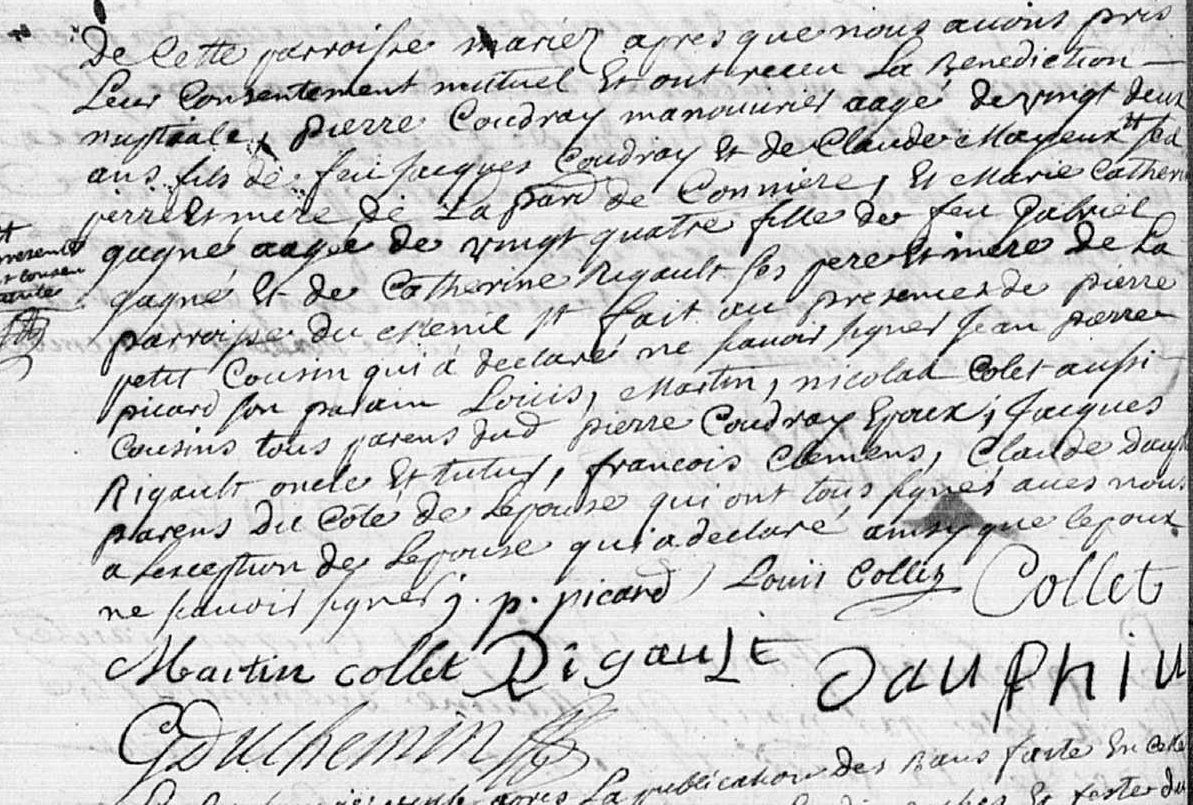 De Cette parroisse mariez apres que nous avons pris
Leur Consentement mutuel Et ont receu La Benediction
nuptiale, pierre Coudray manouvrier aagé de vingt deux
ans fils de feu Jacques Coudray Et de Claude Mayeux ses
perre Et mere de La par de Conniere, Et Marie Catherin
gagné aagée de vingt quatre fille de feu Gabriel
gagné Et de Catherine Rigault ses pere Et mere de La
parroisse du Menil # fait au presences de pierre
petit Cousin qui a declaré ne savoir signer Jean pierre
picard son parain Louis, Martin, nicolas Colet aussi
Cousins tous parens dud pierre Coudray Epoux, Jacques
Rigault oncle Et tuteur, francois Clemens, Claude Dauph
parens Du Côté de Lepouse qui ont tous signés avec nous
a Lexception de Lepouse qui a declaré ainsy que lepoux
ne savoir signer j. p. picard Louis Collez Collet
Martin collet Rigault Dauphin
GDuchemin
après La publication des Bans faite En Cette